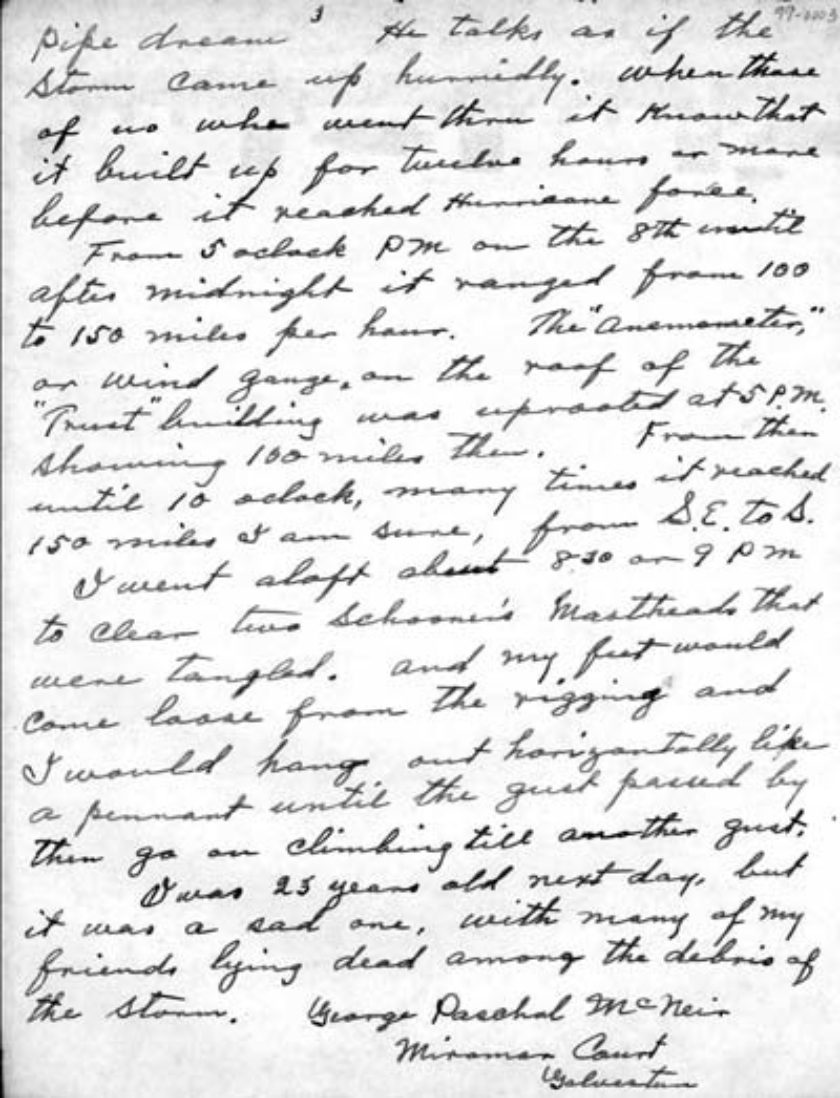 3
99-0003
pipe dream He talks as if the
Storm came up hurriedly. when those
of us who went thru it Know that
it built up for twelve hours or more
before it reached Hurricane force.
From 5 oclock PM on the 8th until
after midnight it ranged from 100
to 150 miles per hour. The "Anemometer,"
or wind gauge, on the roof of the
"Trust" building was uprooted at 5 P.M.
showing 100 miles then. From then
until 10 oclock, many times it reached
150 miles I am sure, from S.E. to S.
I went aloft about 8 30 or 9 P M
to clear two Schooner's Mastheads that
were tangled. and my feet would
come loose from the rigging and
I would hang out horizontally like
a pennant until the gust passed by
then go on climbing till another gust.
I was 23 years old next day, but
it was a sad one, with many of my
friends lying dead among the debris of
the storm. George Paschal McNeir
Miramar Court
Galveston